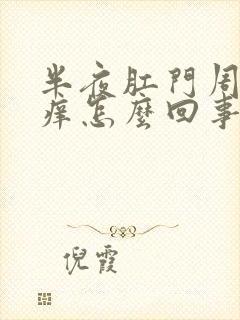 半夜肛門周
痒怎麼回事
倪霞